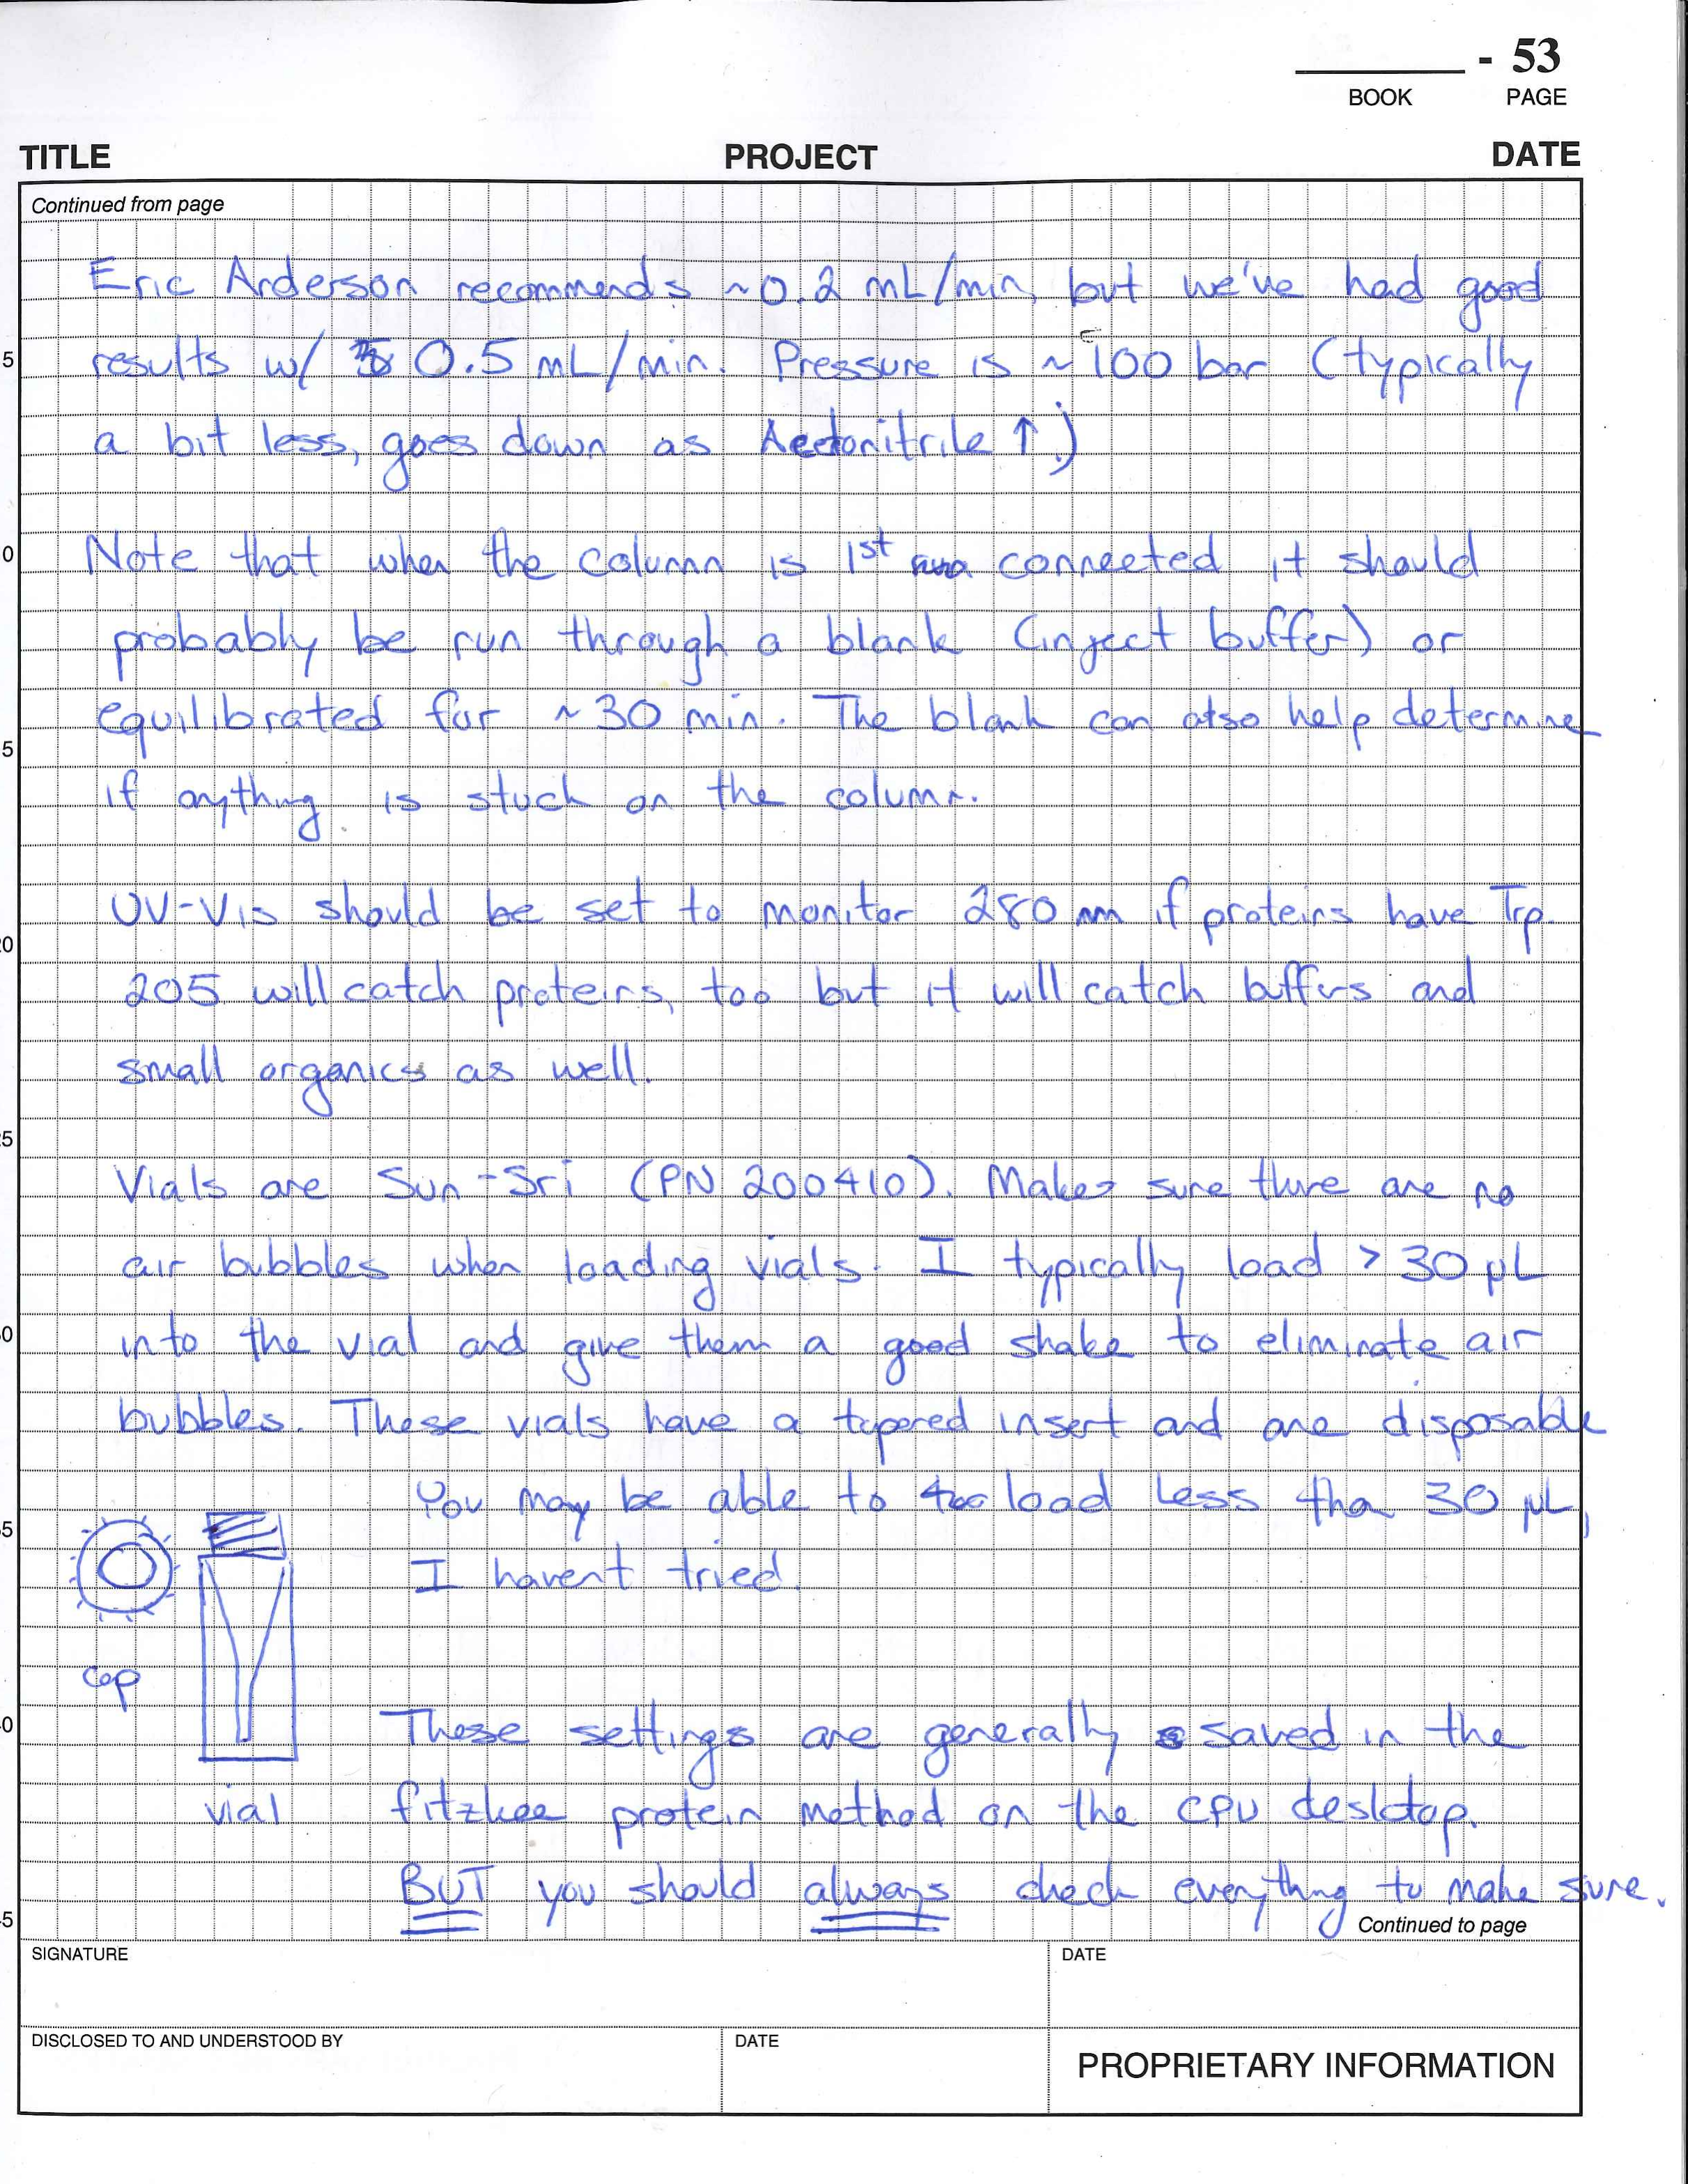 - 53
BOOK PAGE
TITLE PROJECT DATE
Continued from page
Eric Anderson recommends ~0.2 mL/min, but we've had good
5 results w/ 0.5 mL/min. Pressure is ~100 bar (typically
a bit less, goes down as Acetonitrile ↑.)
0 Note that when the column is 1st connected it should
probably be run through a blank (inject buffer) or
equilibrated for ~30 min. The blank can also help determine
5
if anything is stuck on the column.
UV-Vis should be set to monitor 280 nm if proteins have Trp.
20
205 will catch proteins, too but it will catch buffers and
small organics as well.
25
Vials are Sun-Sri (PN 200410). Makes sure there are no
air bubbles when loading vials. I typically load > 30 µL
0 into the vial and give them a good shake to eliminate air
bubbles. These vials have a tapered insert and are disposable
You may be able to load less tha 30 µL,
35
I havent tried.
cap
0 These settings are generally saved in the
vial fitzkee protein method on the CPU desktop.
BUT you should always check everything to make sure.
5 Continued to page
SIGNATURE DATE
DISCLOSED TO AND UNDERSTOOD BY DATE
PROPRIETARY INFORMATION